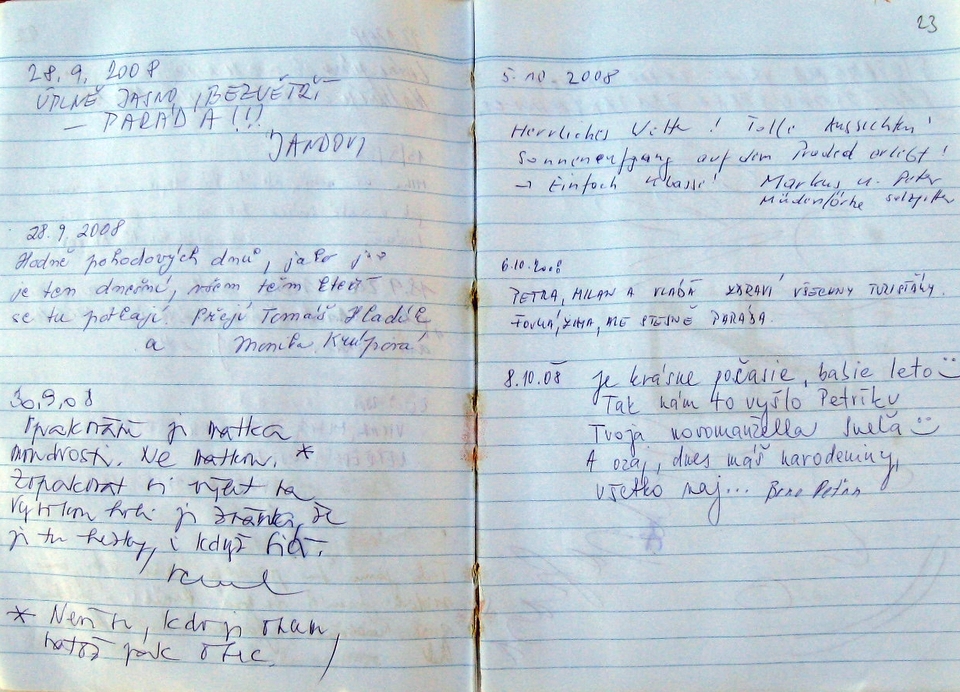 28.9. 2008
ÚPLNĚ JASNO, BEZVĚTŘÍ
— PARÁDA!!!
JANDOVI
28.9 2008
Hodně pohodových dnů, jako
je ten dnešní, všem těm kteří
se tu potkají. Přejí Tomáš Hladík
a Monika Krupová
30.9.08
Opakování je matka
moudrosti. Ne matkou. *
Zopakovat si výlet na
je tu hezky, i když
* Není tu, kdo je
natož pak otec.
23
5.10.2008
Herrliches Wetter! Tolle Aussichten!
Sonnenaufgang auf dem Praded erlebt!
→ Einfach klasse! Markus u. Peter
6.10.2008
PETRA, MILAN A VLÁĎA ZDRAVÍ VŠECHNY TURISŤÁKY.
ZIMA, ALE STEJNĚ PARÁDA.
8.10.08 je krásne počasie, babie leto
Tak nám to vyšlo Petríku
Tvoja novomanželka Sveťa
A oza, dnes máš narodeniny,
všetko naj...